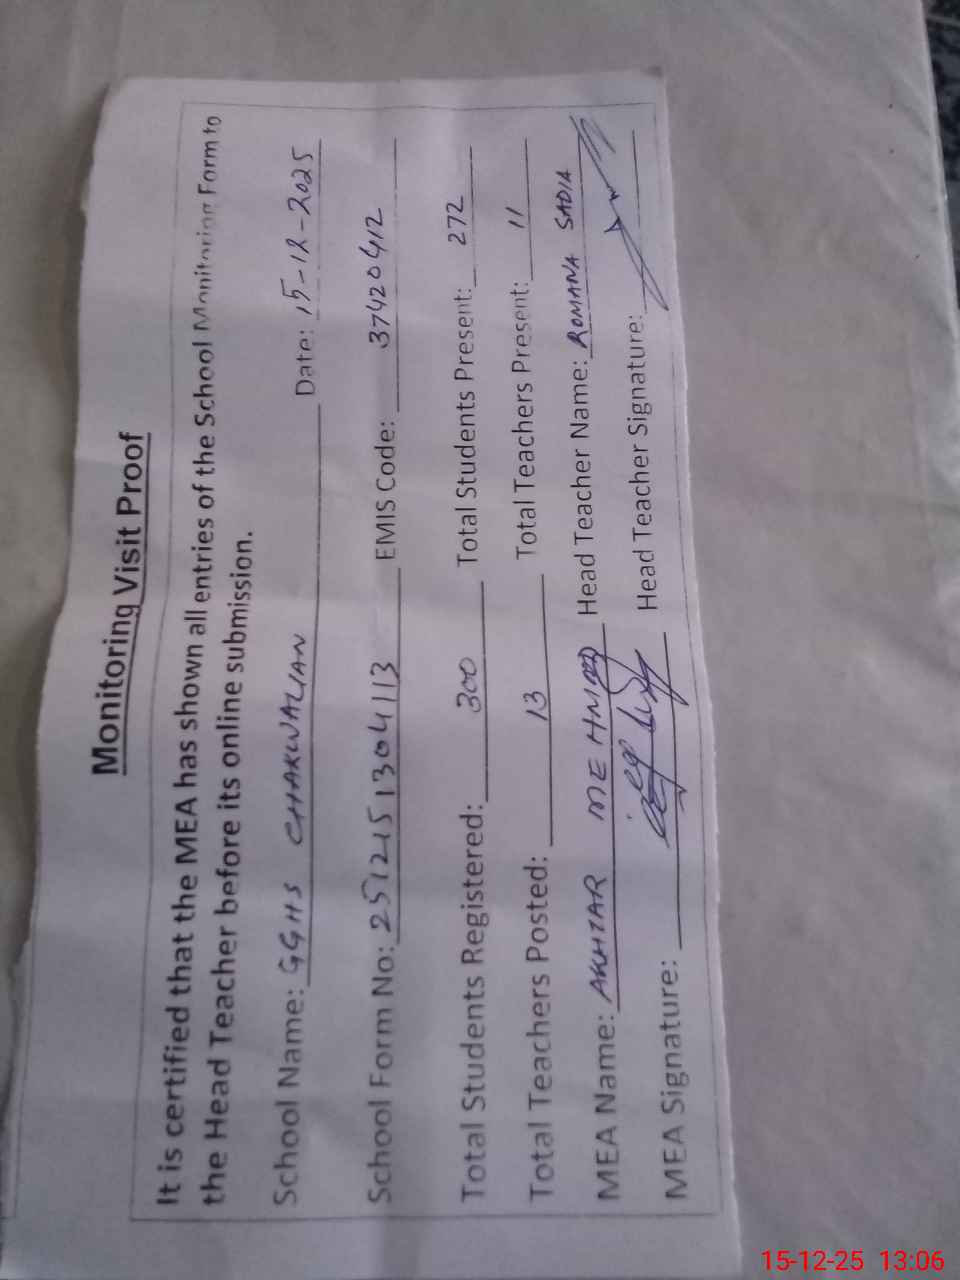 Monitoring Visit Proof
It is certified that the MEA has shown all entries of the School Monitoring Form to
the Head Teacher before its online submission.
School Name: GGHS CHAKWALIAN Date: 15-12-2025
School Form No: 251215 1304113 EMIS Code: 37420412
Total Students Registered: 300 Total Students Present: 272
Total Teachers Posted: 13 Total Teachers Present: 11
MEA Name: AKHTAR Head Teacher Name: ROMANA SADIA
MEA Signature: Head Teacher Signature:
15-12-25 13:06